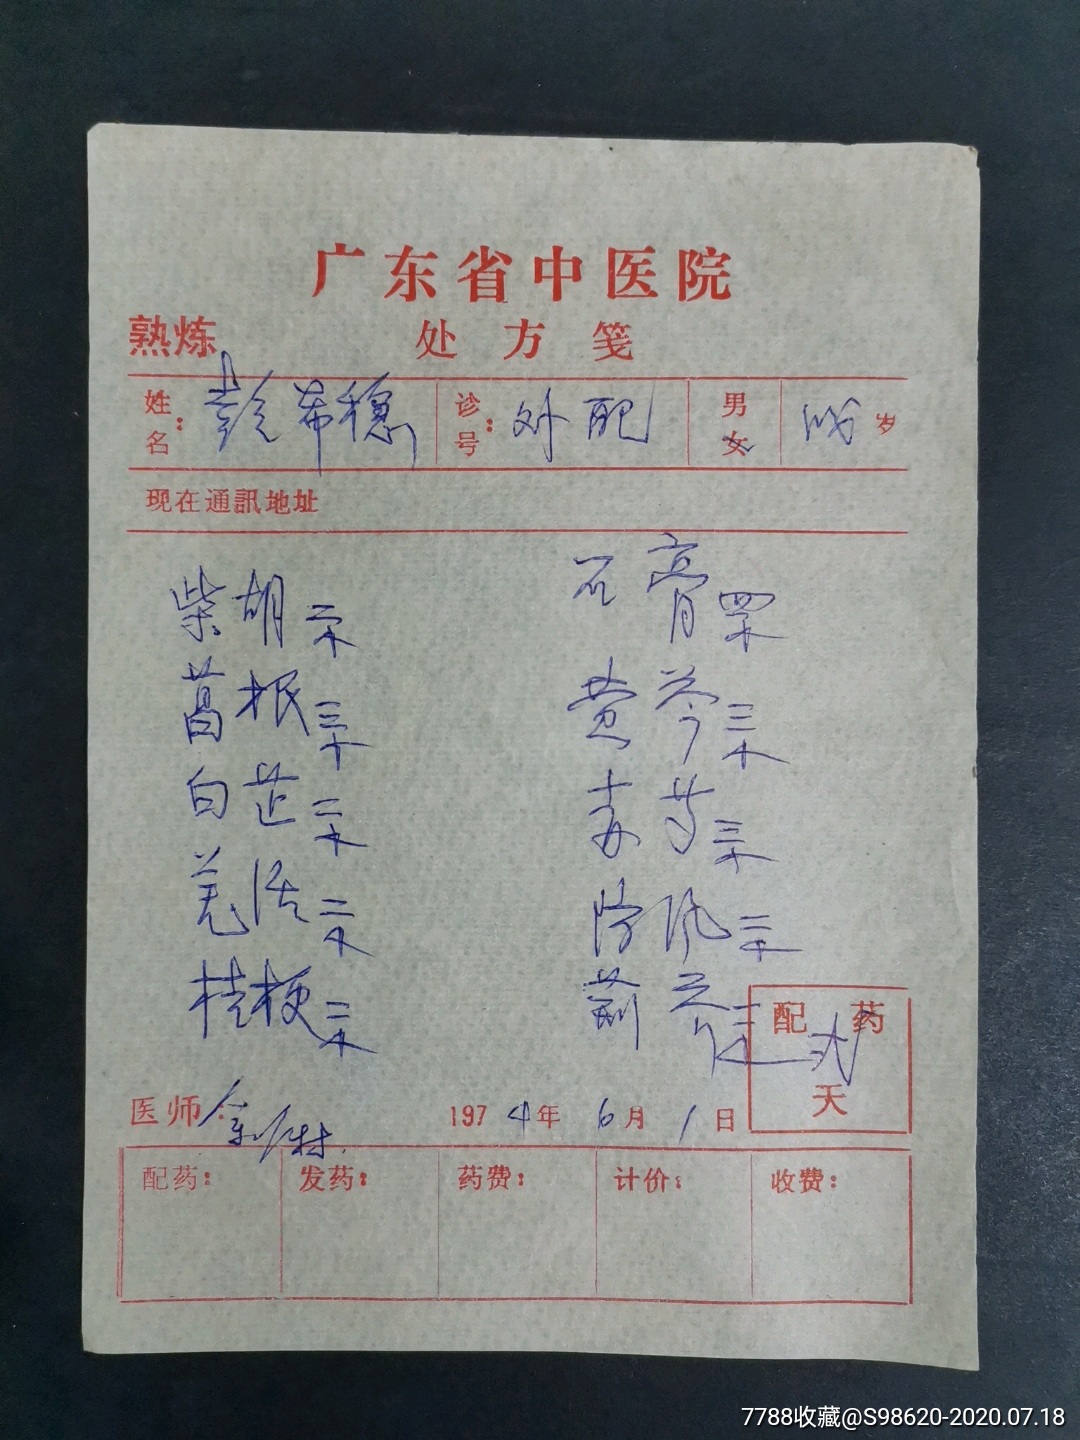 广东省中医院
熟炼 处方笺
姓名： 彭希穗 诊号： 外配 男 女 岁
现在通訊地址
柴胡 二不 石膏 四不
葛根 三不 黄芩 三不
白芷 二不 赤芍 三不
羌活 二不 防风 二不
桔梗 二不 荆芥
配药 天
医师： 1974年6月1日
配药： 发药： 药费： 计价： 收费：
7788收藏@S98620-2020.07.18